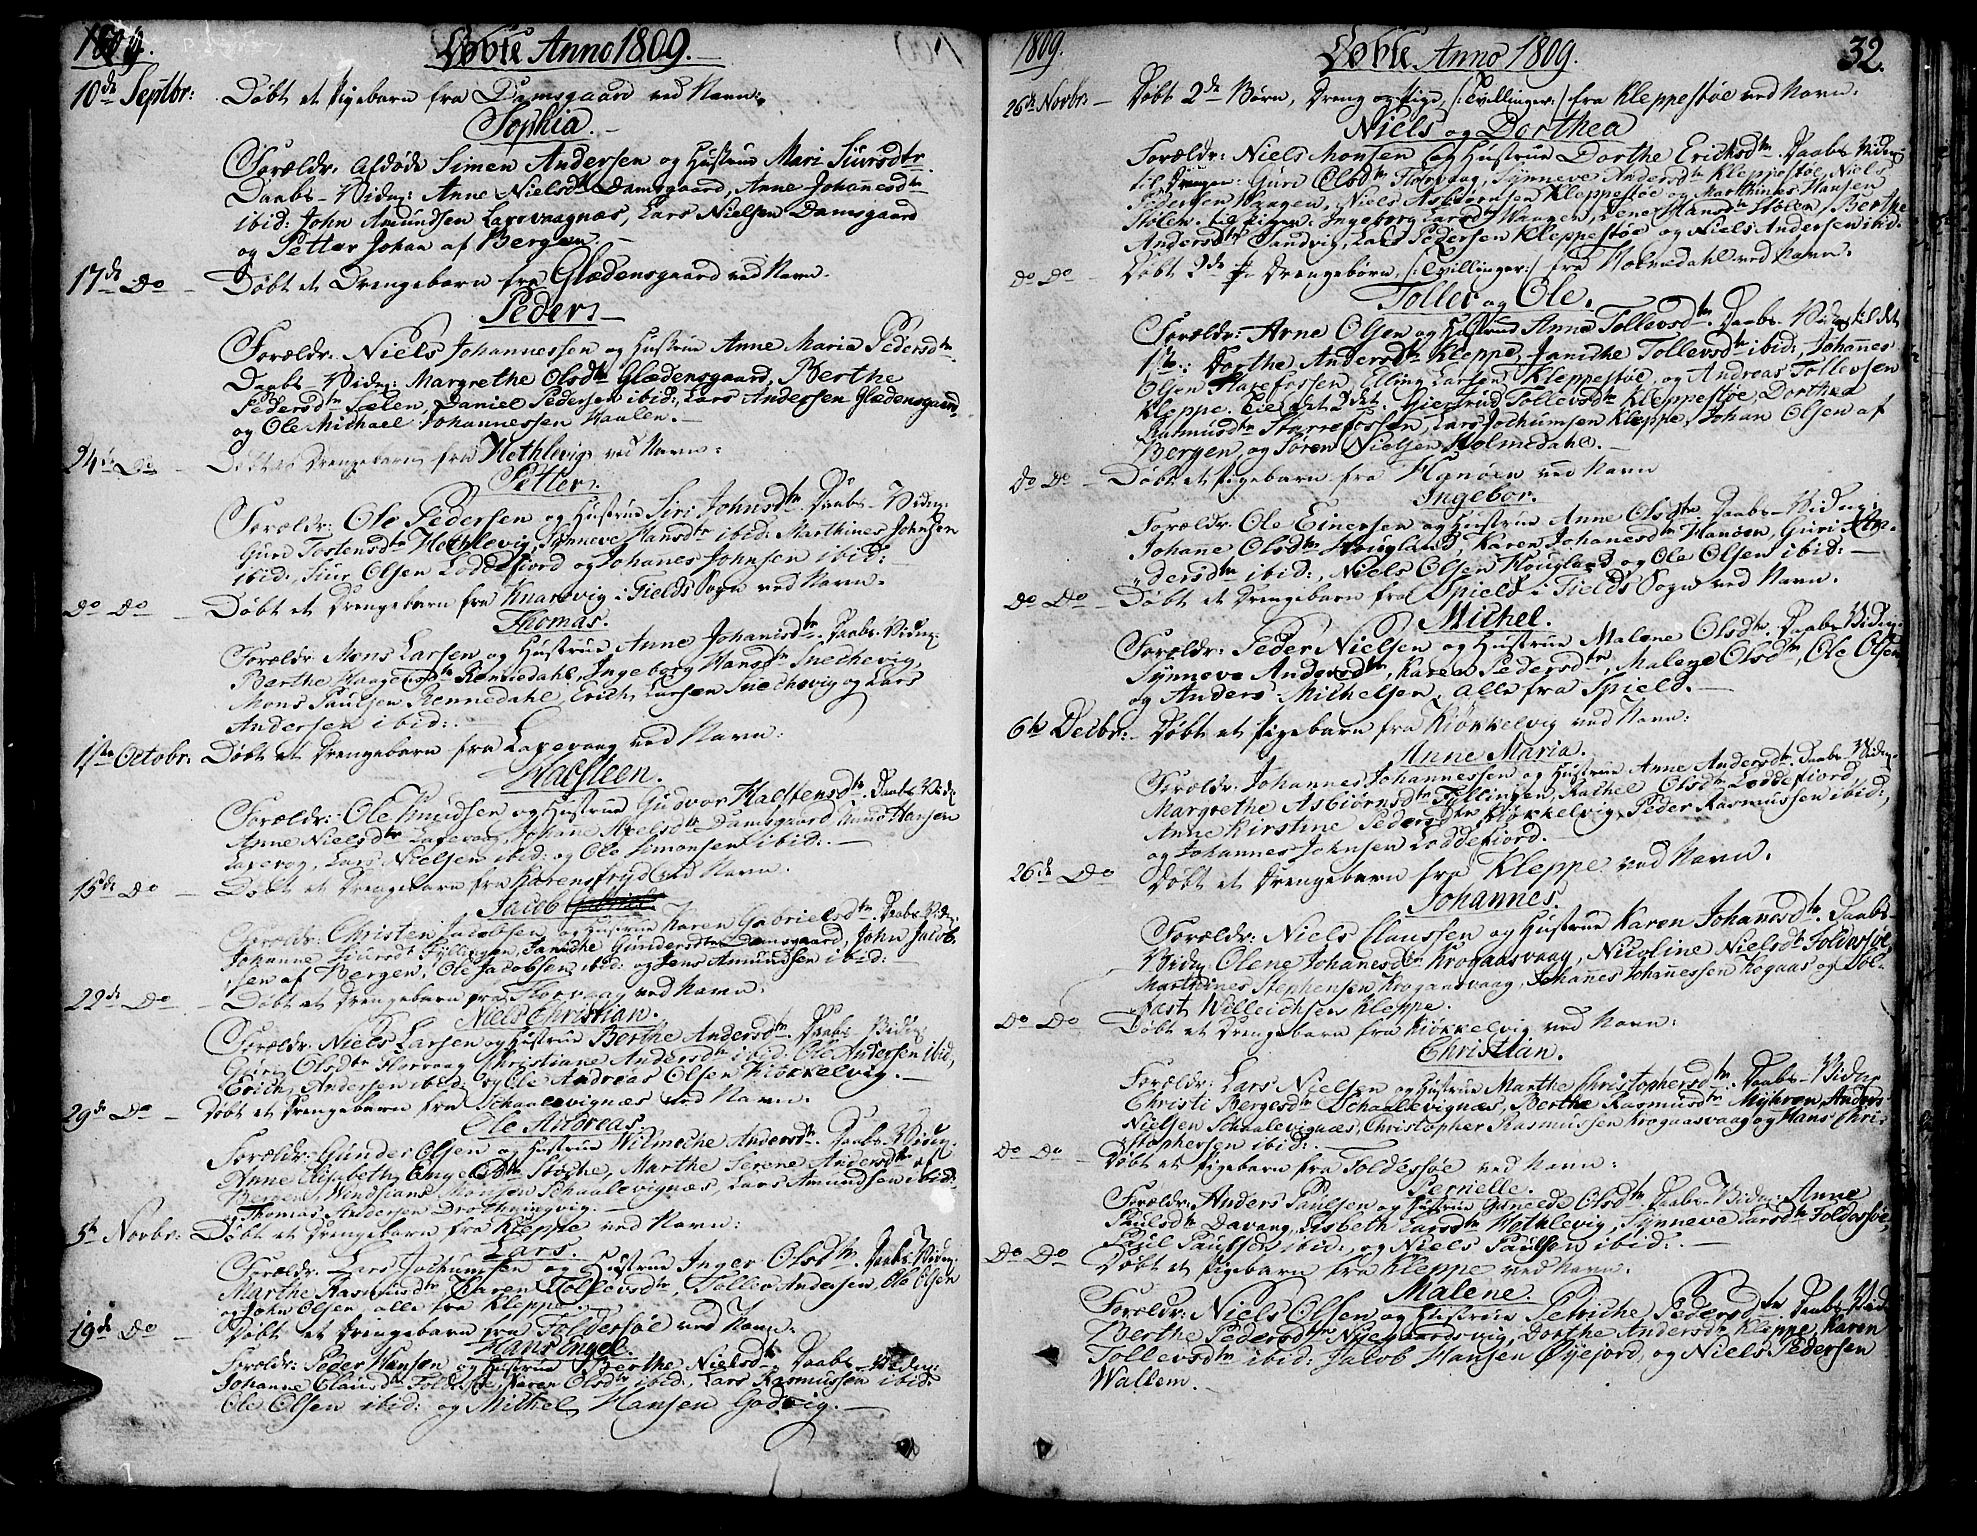 1809.
Døbte Anno 1809.
10de Septbr: Døbt et Pigebarn fra Damsgaard ved Navn:
Sophia.
Forældr: Afdøde Simen Andersen og Hustrue Mari Siursdtr.
Daabs-Vidn: Anne Nielsdtr Damsgaard, Anne Johannesdtr
ibid: John Amundsen Laxevaagnæs, Lars Nielsen Damsgaard
og Petter Johan af Bergen.
17de Do Døbt et Drengebarn fra Glædensgaard ved Navn.
Peder.
Forældr: Niels Johannessen og Hustrue Anne Maria Pedersdtr
Daabs-Vidn: Margrethe Olsdtr Glædensgaard, Berthe
Pedersdtr Sælen, Daniel Pedersen ibid: Lars Andersen Glædensgaard,
og Ole Michael Johannessen Haalen.
24de Do Døbt et Drengebarn fra Hethlevig ved Navn:
Petter.
Forældr: Ole Pedersen og Hustrue Siri Johnsdtr. Daabs-Vidn:
Guri Tostensdtr Hethlevig, Synneve Hansdtr ibid: Marthines Johnsen
ibid: Siur Olsen Loddefiord og Johannes Johnsen ibid:
Do Do Døbt et Drengebarn fra Knarrvig i Fields Sogn ved Navn.
Thomas.
Forældr: Mons Larsen og Hustrue Anne Johanisdtr. Daabs-Vidn:
Berthe Haagensdtr Rennedahl, Ingeborg Hansdtr Snechevig,
Mons Paulsen Rennedahl, Erich Larsen Snechevig og Lars
Andersen ibid:
1ste Octobr: Døbt et Drengebarn fra Laxevaag ved Navn:
Halsteen.
Forældr: Ole Knudsen og Hustrue Gudvor Halstensdtr. Daabs-Vidn:
Anne Nielsdtr Laxevaag, Johne Nielsdtr Damsgaard, Knud Hansen
Laxevog, Lars Nielsen ibid: og Ole Simonsen ibid:
15de Do Døbt et Drengebarn fra Karensfryd ved Navn.
Jacob Gabriel.
Forældr: Christen Jacobsen og Hustrue Karen Gabrielsdtr. Daabs-Vidn:
Johanne Siursdtr Fyllingen, Janiche Gundersdtr Damsgaard, John Jacob-
sen af Bergen, Ole Jacobsen ibid: og Jens Amundsen ibid:
22de Do Døbt et Drengebarn fra Florvaag ved Navn:
Niels Christian.
Forældr: Niels Larsen og Hustrue Berthe Andersdtr. Daabs-Vidn:
Guri Olsdtr Florvaag, Christiane Andersdtr ibid: Ole Andersen ibid,
Erich Andersen ibid: og Ole Andreas Olsen Kiøkkelvig.
29de Do Døbt et Drengebarn fra Schaalevignæs ved Navn.
Ole Andreas.
Forældr: Gunder Olsen og Hustrue Wilmeche Andersdtr. Daabs-Vidn:
Anne Elisabeth Engelsdtr, Marthe Serene Andersdtr af
Bergen, Monsen Schaalevignæs, Lars Amundsen ibid:
Thomas Andersen Drothningvig.
5te Novbr: Døbt et Drengebarn fra Kleppe ved Navn:
Lars.
Forældr: Lars Jochumsen og Hustrue Inger Olsdtr. Daabs-Vidn:
Marthe Rasmusdtr, Karen Tollevsdtr, Tollev Andersen, Ole Olsen
og John Olsen, alle fra Kleppe.
19de Do Døbt et Drengebarn fra Foldersøe ved Navn:
Hans Engel.
Forældr: Peder Hansen og Hustrue Berthe Nielsdtr. Daabs-Vidn:
Johanne Clausdtr Foldersøe, Karen Olsdtr ibid:, Lars Rasmussen ibid:
Ole Olsen ibid: og Mickel Hansen Godvig.
1809.
Døbte Anno 1809.
32.
26de Novbr: Døbt 2de Børn, Dreng og Pige, /:Tvillinger:/ fra Kleppestøe ved Navn:
Niels og Dorthea
Forældr: Niels Monsen og Hustrue Dorthe Erichsdtr. Daabs-Vidn:
til Drengen: Guri Olsdtr Florvaag, Synneve Andersdtr Kleppestøe, Niels
Pedersen Waagen, Niels Asbiørnsen Kleppestøe og Marthines Hansen
Stølen. Til Pigen: Ingeborg Larsdtr Waagen, Lene Hansdtr Stølen, Berthe
Andersdtr Sandvig, Lars Pedersen Kleppestøe og Niels Andersen ibid:
Do Do Døbt 2de Drengebørn, /:Tvillinger:/ fra Holmedahl ved Navn.
Tollev og Ole.
Forældr: Arne Olsen og Hustrue Anne Tollevsdtr. Daabs-Vidn: til det
1te: Dorthe Andersdtr Kleppe, Janiche Tollevsdtr ibid:, Johannes
Olsen Harefossen, Elling Larsen Kleppestøe, og Andreas Tollevsen
Kleppe. Til det 2det: Giertrud Tollevsdtr Kleppestøe, Dorthea
Rasmusdtr Storrefossen, Lars Jochumsen Kleppe, Johan Olsen af
Bergen, og Søren Nielsen Holmedahl.
Do Do Døbt et Pigebarn fra Hanøen ved Navn
Ingebor.
Forældr: Ole Einersen og Hustrue Anne Olsdtr. Daabs-Vidn:
Johane Olsdtr Hougland, Karen Johanesdtr Hanøen, Guri An-
dersdtr ibid:, Niels Olsen Hougland og Ole Olsen ibid:
Do Do Døbt et Drengebarn fra Spield i Fields Sogn ved Navn.
Michel.
Forældr: Peder Nielsen og Hustrue Malene Olsdtr. Daabs-Vidn:
Synneve Andersdtr, Karen Pedersdtr, Malene Olsdtr, Ole Olsen
og Anders Michelsen, alle fra Spield.
6te Decbr: Døbt et Pigebarn fra Kiøkkelvig ved Navn:
Anne Maria.
Forældr: Johannes Johannessen og Hustrue Anne Andersdtr. Daabs-Vidn:
Margrethe Asbiørnsdtr Fyllingen, Rachel Olsdtr Loddefiord,
Anne Kirstine Pedersdtr Kiøkkelvig, Peder Rasmussen ibid:,
og Johannes Johnsen Loddefiord.
26de Do Døbt et Drengebarn fra Kleppe ved Navn.
Johannes.
Forældr: Niels Claussen og Hustrue Karen Johanesdtr. Daabs-
Vidn: Olene Johanesdtr Krogaasvaag, Nicoline Nielsdtr Foldersøe,
Marthines Stephensen Krogaasvaag, Johannes Johannessen Krogaas og Fol-
kast Willeichsen Kleppe.
Do Do Døbt et Drengebarn fra Kiøkkelvig ved Navn:
Christian.
Forældr: Lars Nielsen og Hustrue Marthe Christophersdtr. Daabs-Vidn:
Christi Bergesdtr Schaalevignæs, Berthe Rasmusdtr Myhren, Anders
Nielsen Schaalevignæs, Christopher Rasmussen Krogaasvaag og Hans Chri-
stophersen ibid:
Do Do Døbt et Pigebarn fra Foldessøe ved Navn:
Pernelle.
Forældr: Anders Paulsen og Hustrue Gunelde Olsdtr. Daabs-Vidn: Anne
Paulsdtr Davang, Lisbeth Larsdtr Hothlevig, Synneve Larsdtr Foldersøe,
Poul Paulsen ibid:, og Niels Paulsen ibid:
Do Do Døbt et Pigebarn fra Kleppe ved Navn.
Malene.
Forældr: Niels Olsen og Hustrue Petriche Pedersdtr. Daabs-Vidn:
Berthe Pedersdtr Nyegaardsvig, Dorthe Andersdtr Kleppe, Karen
Tollevsdtr ibid: Jacob Hansen Øyejord, og Niels Pedersen
Wallem.